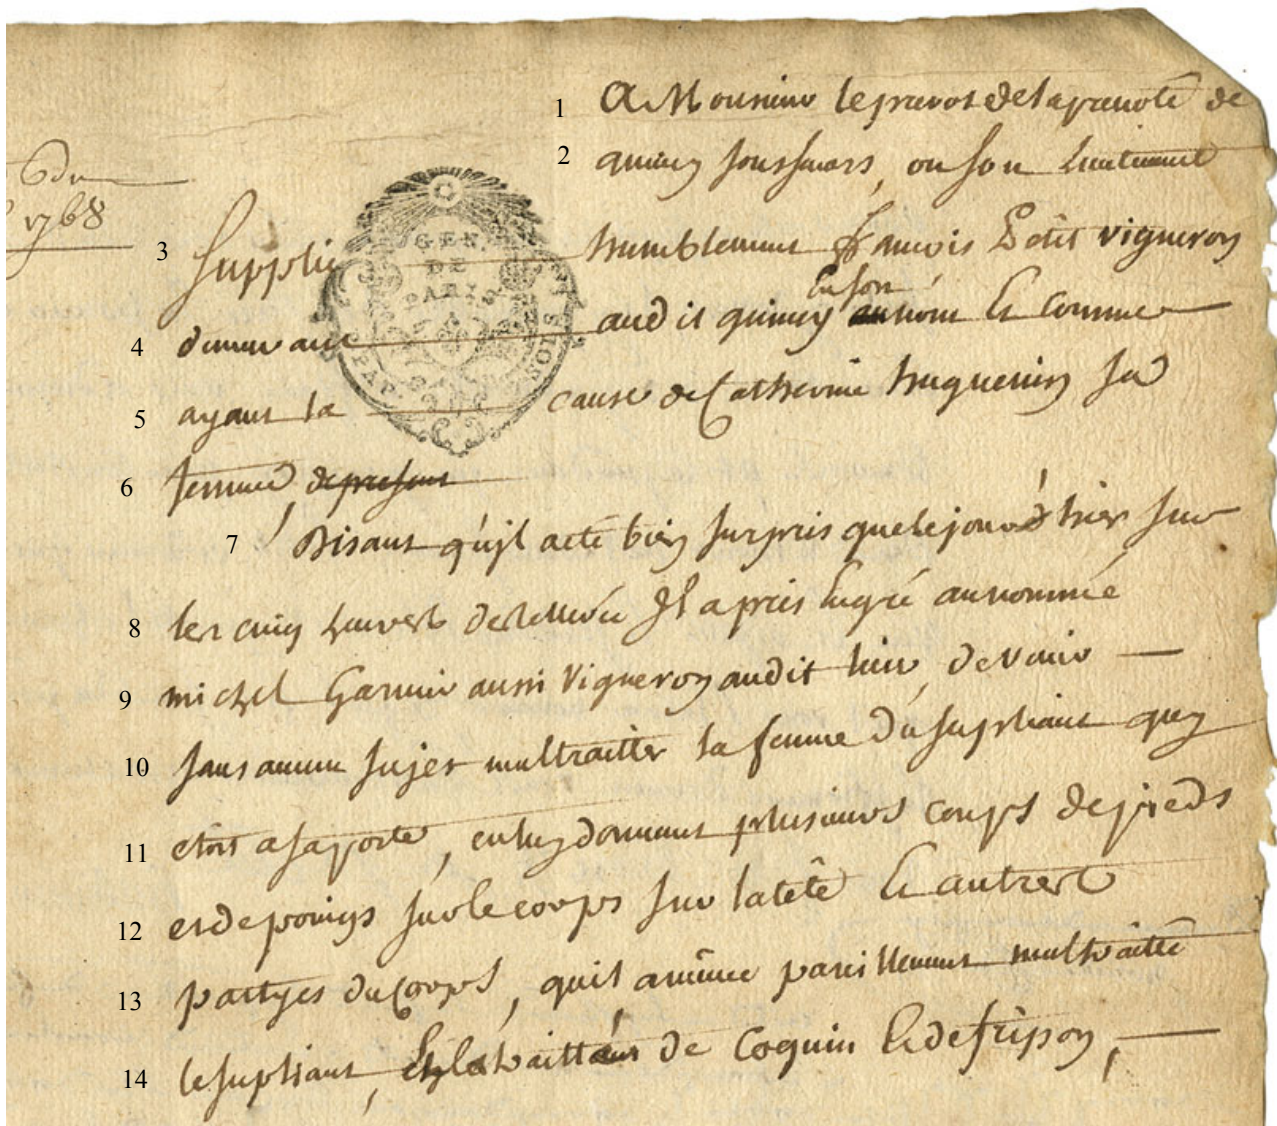 6 du
1768
GEN. DE PARIS
PAP. NOTS
1 A Monsieur le prevot de la prevoté de
2 quincy soussenars, ou son Lieutenant
3 Supplie humblement francois Petit vigneron
4 demeurant audit quincy en son nom Et comme
5 ayant la cause de Catherine huguenin sa
6 femme, de present
7 Disant qu'jl a eté bien surpris que le jour d'hier sur
8 les cinq heures de relevée Jl a pris En gré au nommée
9 michel Garnier aussi vigneron audit lieu, de venir
10 sans aucun sujet maltraitter la femme du supliant quy
11 etoit a sa porte, en luy donnant plusieurs coups de pieds
12 et de poings sur le corps sur la tête Et autres
13 partyes du Corps, quil a même pareillement maltraitté
14 le supliant, En le traittant de Coquin Et de fripon,